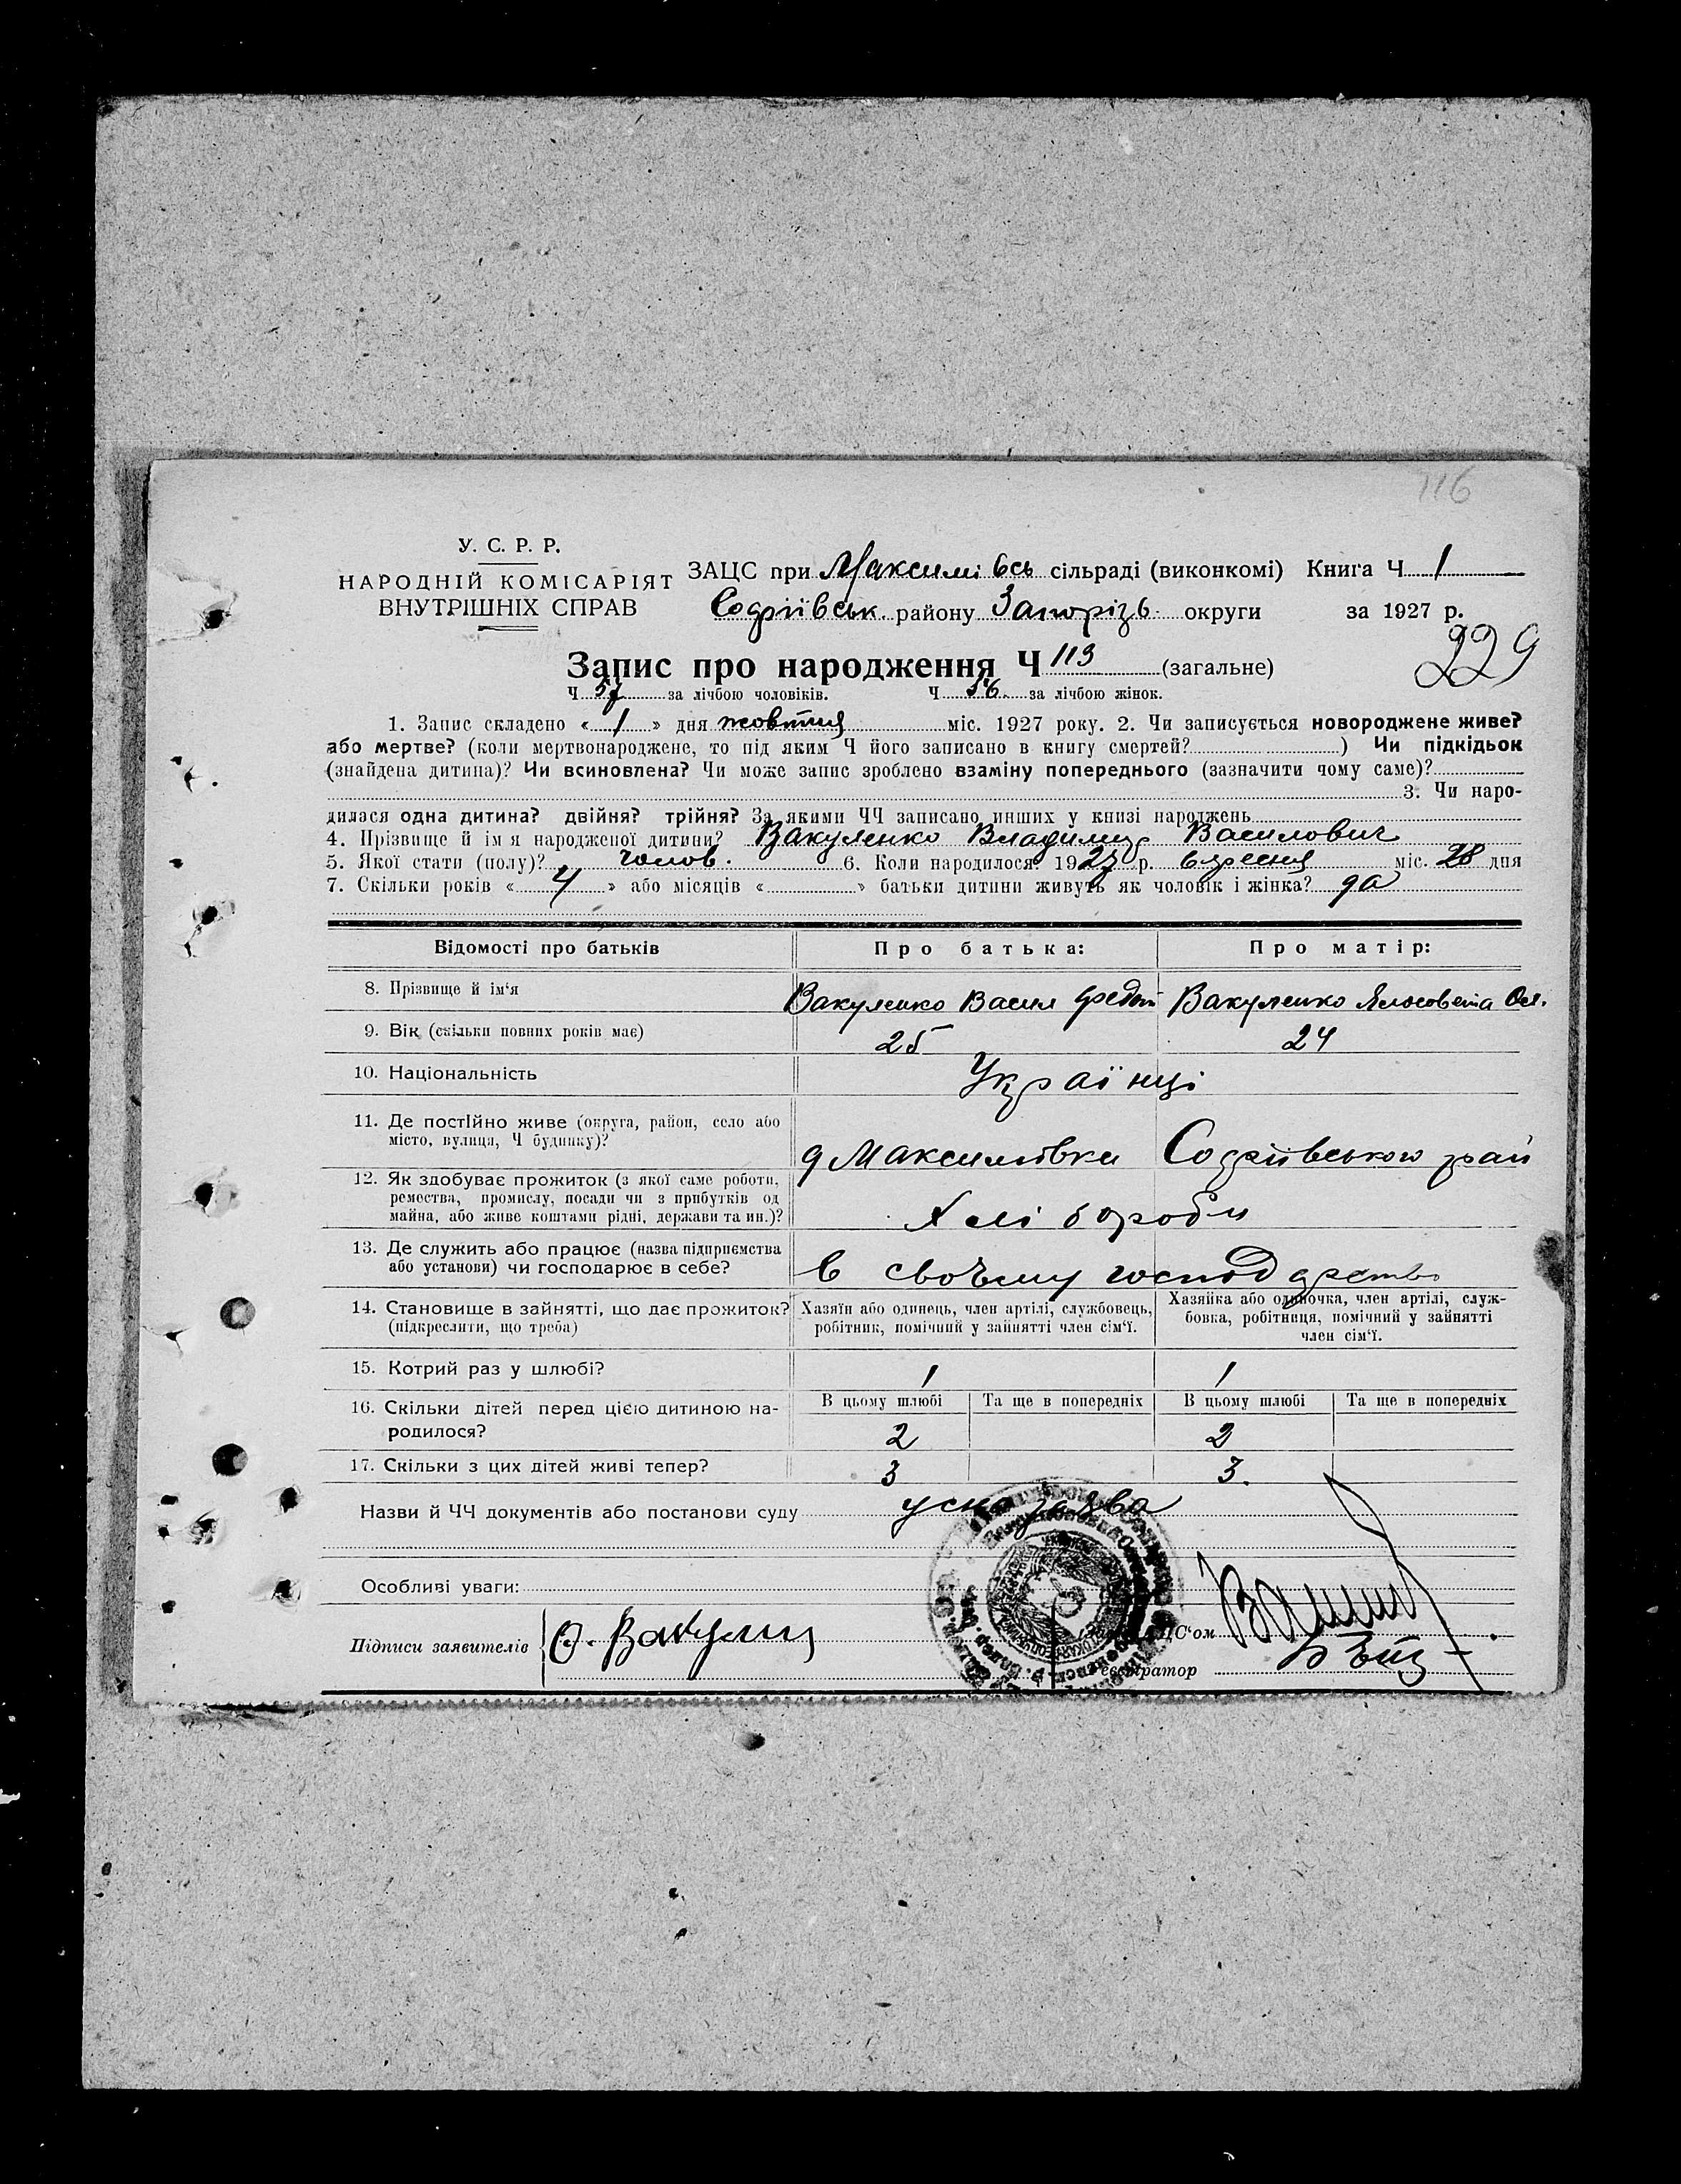 116
У. С. Р. Р.
НАРОДНІЙ КОМІСАРІЯТ
ВНУТРІШНІХ СПРАВ
ЗАЦС при Максимівсь сільраді (виконкомі) Книга Ч 1
Софіївськ. району Запорізь округи за 1927 р.
229
Запис про народження Ч 113 (загальне)
Ч 57 за лічбою чоловіків. Ч 56 за лічбою жінок.
1. Запис складено « 1 » дня жовтня міс. 1927 року. 2. Чи записується новороджене живе?
або мертве? (коли мертвонароджене, то під яким Ч його записано в книгу смертей? ) Чи підкідьок
(знайдена дитина)? Чи всиновлена? Чи може запис зроблено взаміну попереднього (зазначити чому саме)?
3. Чи наро-
дилася одна дитина? двійня? трійня? За якими ЧЧ записано инших у книзі народжень
4. Прізвище й ім я народженої дитини? Вакуленко Владимир Василович
5. Якої стати (полу)? чолов. 6. Коли народилося? 1927 р. вересня міс. 28 дня
7. Скільки років « 4 » або місяців « » батьки дитини живуть як чоловік і жінка? да
Відомості про батьків Про батька: Про матір:
8. Прізвище й ім‘я Вакуленко Васил Федот Вакуленко Ялосовета
9. Вік (скільки повних років має) 25 24
10. Національність Українці
11. Де постійно живе (округа, район, село або
місто, вулиця, Ч будинку)? д Максимівки Софіївського рай
12. Як здобуває прожиток (з якої саме роботи,
ремества, промислу, посади чи з прибутків од
майна, або живе коштами рідні, держави та ин.)? Хлі бороби
13. Де служить або працює (назва підприємства
або установи) чи господарює в себе? в своъму господарство
14. Становище в зайнятті, що дає прожиток?
(підкреслити, що треба)
Хазяїн або одинець, член артілі, службовець,
робітник, помічний у зайнятті член сім‘ї.
Хазяйка або одиночка, член артілі, служ-
бовка, робітниця, помічний у зайнятті
член сім‘ї.
15. Котрий раз у шлюбі? 1 1
16. Скільки дітей перед цією дитиною на-
родилося?
В цьому шлюбі Та ще в попередніх В цьому шлюбі Та ще в попередніх
2 2
17. Скільки з цих дітей живі тепер? 3 3.
Назви й ЧЧ документів або постанови суду усна заява
Особливі уваги:
Підписи заявителів
ЦС‘ом
єєстратор